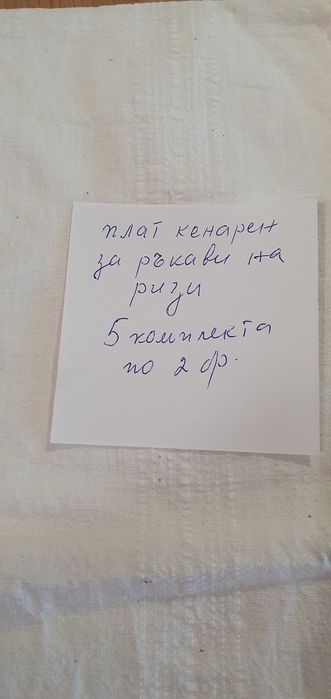 плат кенарен
за ръкави на
ризи
5 комплекта
по 2 бр.